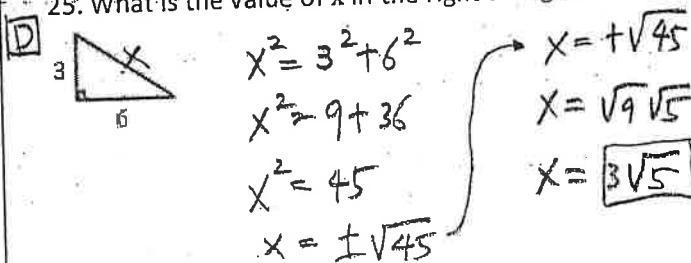 25. What is the value of x in the right
D
3
x
6
x² = 3² + 6²
x² = 9 + 36
x² = 45
x = ±√45
x = +√45
x = √9 √5
x = 3√5